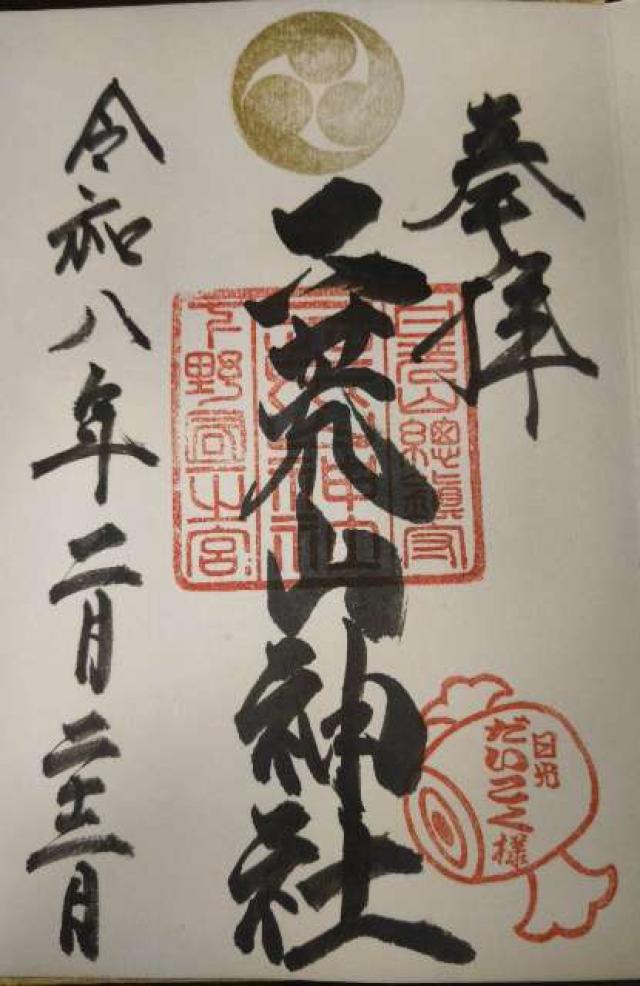 奉拝
二荒山神社
日光山總鎮守
二荒山神社
下野國一之宮
日光
だいこく様
令和八年二月二十二日